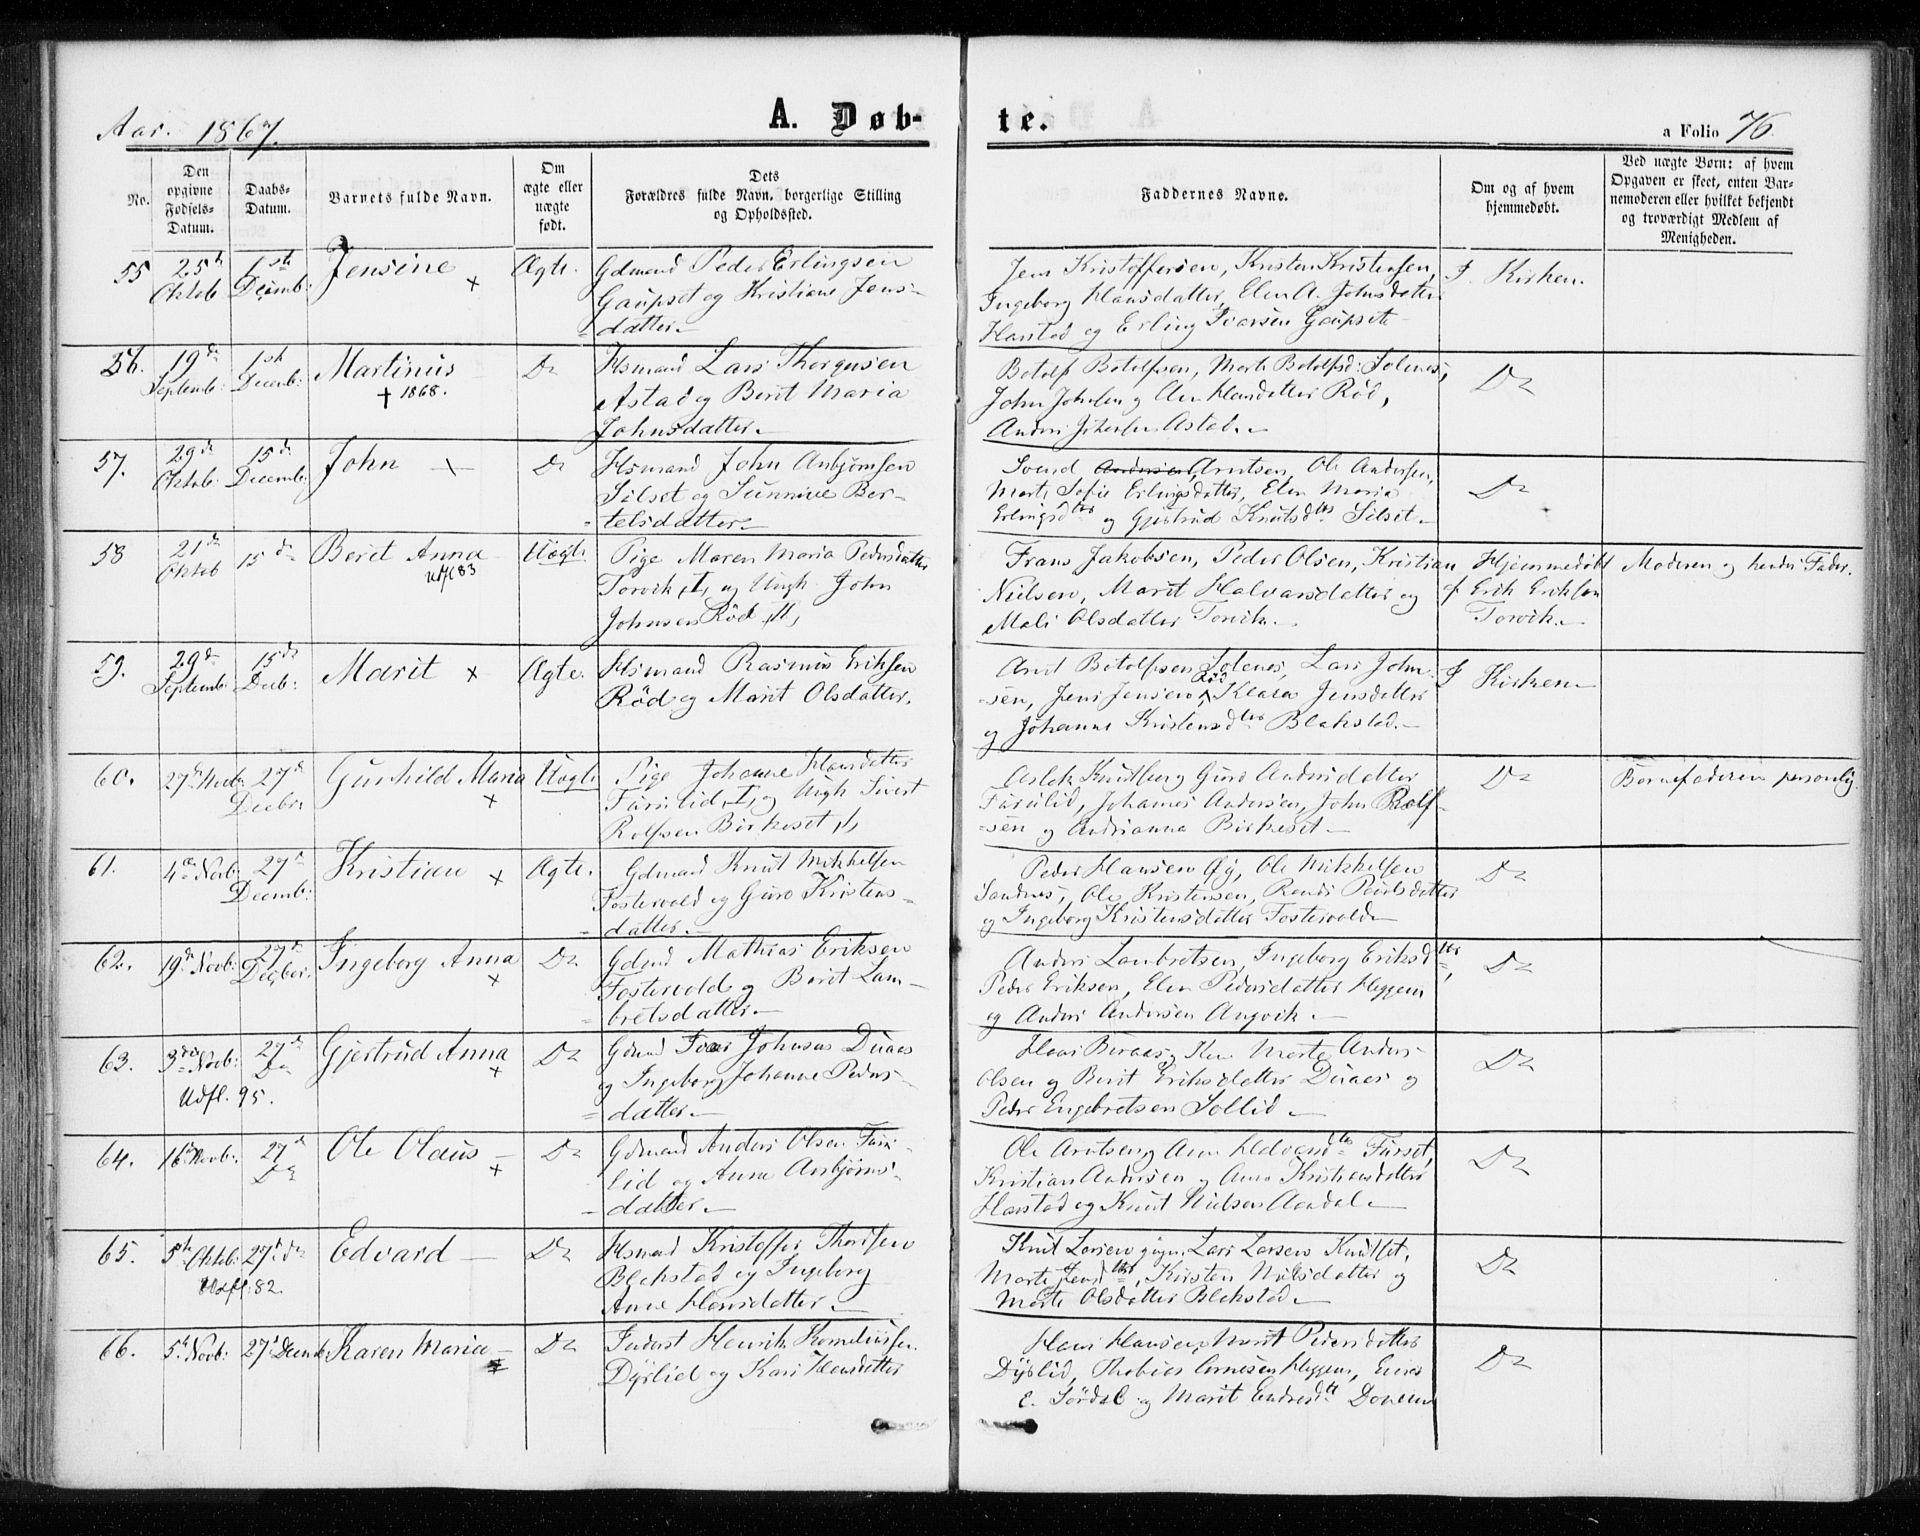 Aar. 1867. A. Døbte. a Folio 76
No.
Den opgivne Fødsels-Datum.
Daabs-Datum.
Barnets fulde Navn.
Om ægte eller uægte født.
Dets Forældres fulde Navn, borgerlige Stilling og Opholdssted.
Faddernes Navne.
Om og af hvem hjemmedøbt.
Ved uægte Børn: af hvem Opgaven er skeet, enten Barnemoderen eller hvilket bekjendt og troværdigt Medlem af Menigheden.
55 25de Oktob 1ste Decemb: Jensine × Ægte. Gdmand Peder Erlingsen
Gaupset og Kristiane Jens-
datter.
Jens Kristoffersen, Kristen Kristensen,
Ingeborg Hansdatter, Elen A. Johnsdatter
Harstad og Erling Iversen Gaupset
I Kirken.
56. 19de Septemb: 1ste Decemb: Martinus † 1868. Do Hsmand Lars
Astad og Berit Maria
Johnsdatter.
Botolf Botolfsen, Marte Botolfsd: Solenes,
John Johnsen og Ane Hansdatter Rød,
Anders Astad.
Do
57. 29de Oktob: 15de Decemb: John Do Hsmand John Anbjørnsen
Silset og Sunnive Ber-
telsdatter.
Svend Arntsen, Ole Andersen,
Marte Sofie Erlingsdatter, Elen Maria
Erlingsdtr og Gjertrud Knutsdtr Silset.
Do
58 21de Oktob 15de Beret Anna Udfl 83 Uægte Pige Maren Maria Pedersdatter
Torvik, I, og Ungk. John
Johnsen Rød, I,
Frans Jakobsen, Peder Olsen, Kristian
Nielsen, Marit Halvarsdatter og
Mali Olsdatter Torvik.
Hjemmedøbt
af Erik Eriksen
Torvik.
Moderen og hendes Fader.
59. 29de Septemb: 15de Decb: Marit × Ægte. Hsmand Rasmus Eriksen
Rød og Marit Olsdatter.
Arnt Botolfsen Solenes, Lars John-
sen, Jens Jensen Rød, Klara Jensdatter
og Johanne Kristensdtr Blakstad.
I Kirken
60. 27de 27de Decbr. Gunhild Maria × Uægte Pige Johanne Hansdatter
Farulid, I, og Ungk Sivert
Rolfsen Birkeset, I,
Aslak Knutsen og Guro Andersdatter
Farulid, Johannes Andersen, John Rolf-
sen og Andrianna Birkeset.
Do
Barnefaderen personlig
61. 4de Novb: 27de Decemb: Kristian × Ægte. Gdmand Knut Mikkelsen
Fostervold og Guro Kristens-
datter.
Peder Hansen Øy, Ole Mikkelsen
Sandnes, Ole Kristensen, Randi Povlsdatter
og Ingeborg Kristensdatter Fostervold
Do
62. 19de Novb: 27de Decbr. Ingeborg Anna × Do Gdmd Mathias Eriksen
Fostervold og Berit Lam-
bretsdatter.
Anders Lambretsen, Ingeborg Eriksdtr,
Peder Eriksen, Elen Pedersdatter Heggem
og Anders Andersen Angvik.
Do
63. 3die Novb: 27de Do Gjertrud Anna × Udfl. 95. Do Gdmand Iver Johnsen Duaas
og Ingeborg Johanne Peders-
datter.
Hans og Marte Anders-
Olsen og Berit Eriksdatter Duaas og
Peder Engebretsen Sollid.
Do
64. 16de Novb: 27de Do Ole Olaus × Do Gdmand Anders Olsen Faru-
lid og Anne Anbjørns-
datter.
Ole Arntsen og Ane Furset,
Kristian Andersen og Anne Kristiansdatter
Harstad og Knut Nielsen Aandal.
Do
65. 5te Oktob: 27de Do Edvard Udfl: 82. Do Hsmand Kristoffer
Blakstad og Ingeborg
Anne Hansdatter.
Knut Larsen Lars Larsen
Marte Jensdtr, Kirsten Nilsdatter og
Marte Olsdatter Blakstad.
Do
66. 5te Novb: 27de Decemb Karen Maria Do Inderst Henrik Korneliussen
Dyrlid og Kari Hansdatter
Hans Hansen, Marit Pedersdatter
Dyrlid, Thobias Arnesen Heggem,
E. Sørdal og Marit Endresdtr
Do